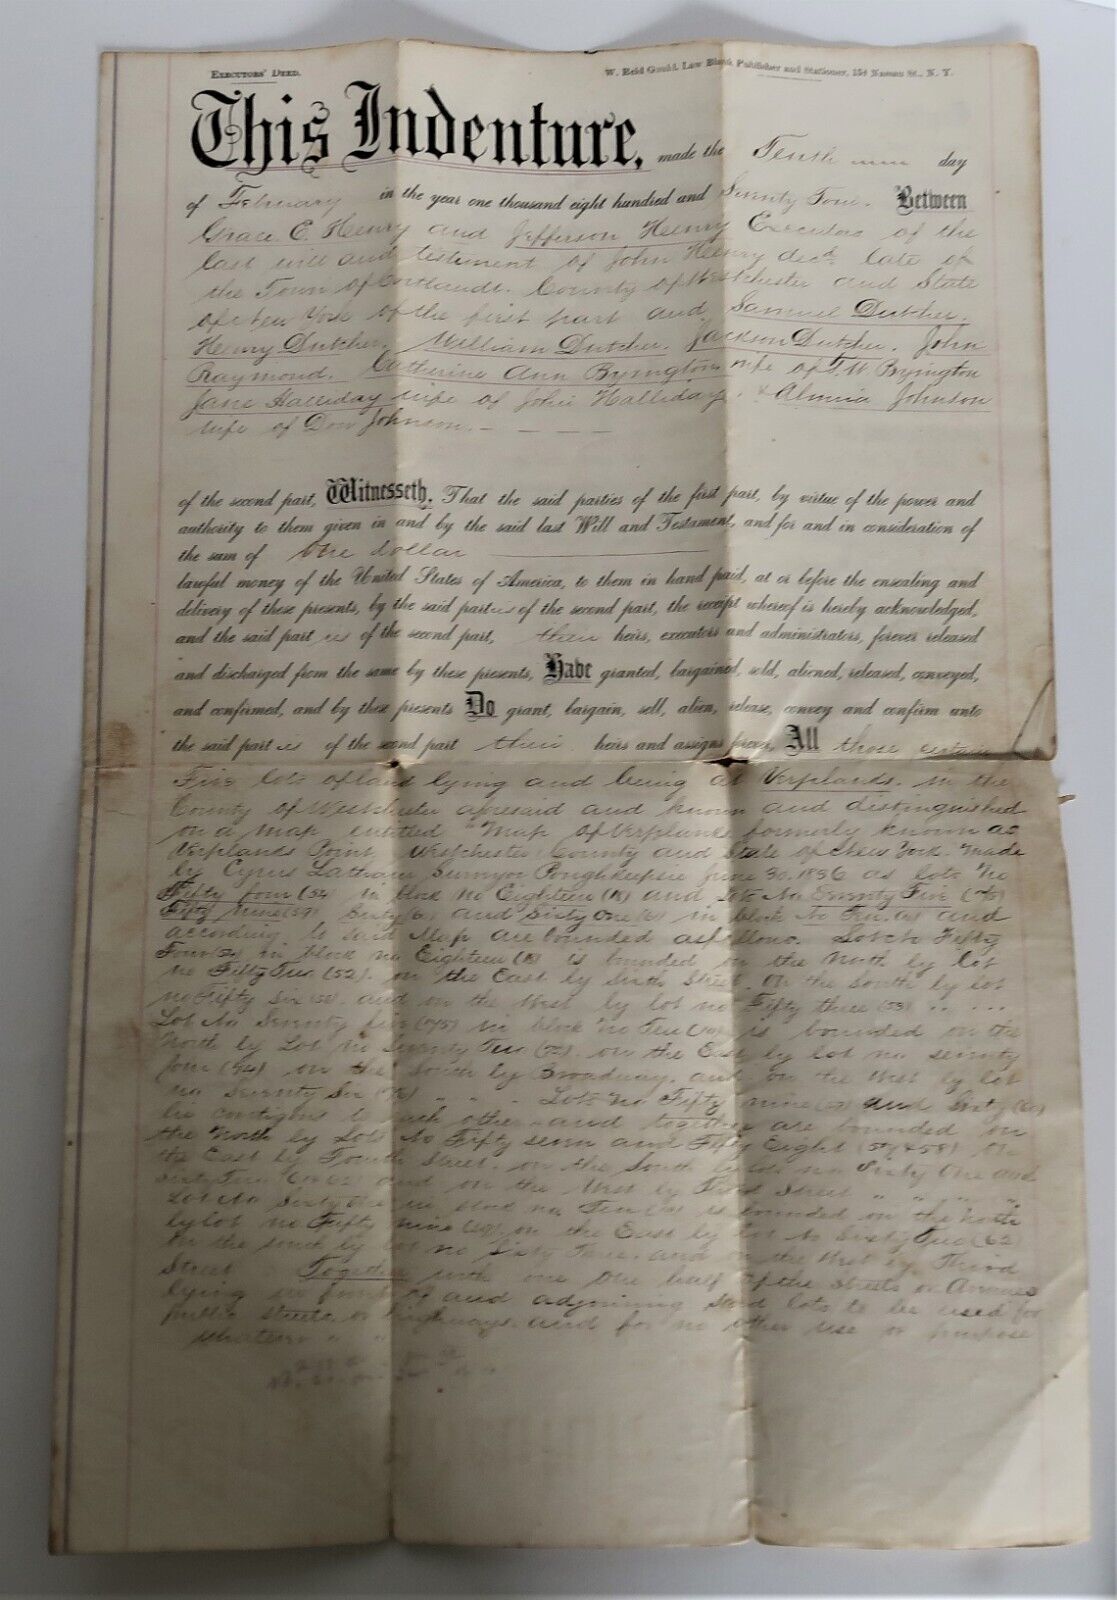 EXECUTORS' DEED.
W. Reid Gould, Law Blank Publisher and Stationer, 154 Nassau St., N. Y.
This Indenture, made the Tenth day
of February in the year one thousand eight hundred and Seventy Four. Between
Grace E. Henry and Jefferson Henry Executors of the
last will and testiment of John Henry decd. late of
the Town of Cortlandt. County of Westchester and State
of New York of the first part and Samuel Dutcher.
Henry Dutcher. William Dutcher. Jackson Dutcher. John
Raymond. Catherine Ann Byington wife of T. W. Byington
Jane Halliday wife of John Halliday. & Almira Johnson
wife of Dow Johnson. - - - -
of the second part, Witnesseth, That the said parties of the first part, by virtue of the power and
authority to them given in and by the said last Will and Testament, and for and in consideration of
the sum of One dollar
lawful money of the United States of America, to them in hand paid, at or before the ensealing and
delivery of these presents, by the said parties of the second part, the receipt whereof is hereby acknowledged,
and the said parties of the second part, their heirs, executors and administrators, forever released
and discharged from the same by these presents, Have granted, bargained, sold, aliened, released, conveyed,
and confirmed, and by these presents Do grant, bargain, sell, alien, release, convey and confirm unto
the said parties of the second part their heirs and assigns forever, All those certain
Five lots of land lying and being at Verplancks. in the
County of Westchester aforesaid and known and distinguished
on a map entitled "Map of Verplancks formerly known as
Verplancks Point, Westchester County and State of New York. Made
by Cyrus Latham Surveyor Poughkeepsie June 30, 1836 as lots No
Fifty four (54) in block no Eighteen (18) and lots No Seventy Five (75)
Fifty Nine (59) Sixty (60) and Sixty One (61) in block No Ten (10) and
according to said Map are bounded as follows. Lot No Fifty
Four (54) in block no Eighteen (18) is bounded on the North by lot
no Fifty Two (52). on the East by Sixth Street. on the South by lot
no Fifty Six (56). and on the West by lot no Fifty three (53) .. .. ...
Lot No Seventy five (75) in block no Ten (10) is bounded on the
North by Lot no Seventy Two (72). on the East by lot no seventy
four (74) on the South by Broadway. and on the West by lot
no Seventy Six (76) " " " Lots No Fifty nine (59) and Sixty (60)
lie contigous to each other and together are bounded on
the North by Lots No Fifty seven and Fifty Eight (57 & 58) On
the East by Fourth Street. on the South by lots no Sixty One and
Sixty Two (61 & 62) and on the West by Third Street " " " "
Lot No Sixty One in block no Ten (10) is bounded on the North
by lot no Fifty nine (59). on the East by lot No Sixty Two (62)
on the South by lot no Sixty Three. and on the West by Third
Street. Together with one One half of the Streets or Avenues
lying in front of and adjoining said lots to be used for
public streets or highways. and for no other use or purpose
whatever " "